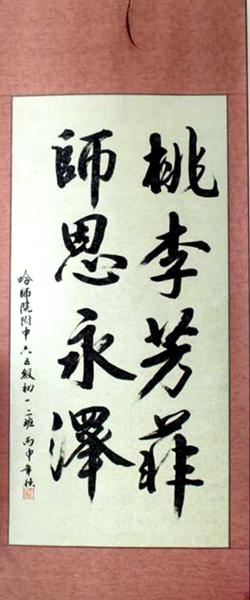 桃李芳菲
師恩永澤
哈師院附中六五級初一二班 丙申年秋